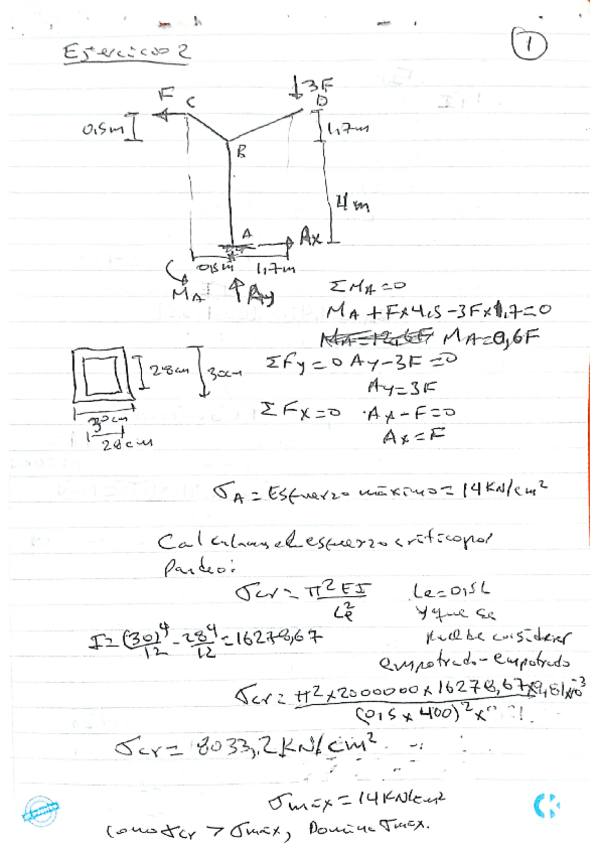 1
Ejercicio 2
F C
3F
D
0,5m
1,7m
B
4m
A
Ax
0,5m 1,7m
MA
Ay
ΣMA=0
MA+F×4,5-3F×1,7=0
MA=12,6F MA=0,6F
28cm 30cm
ΣFy=0 Ay-3F=0
Ay=3F
30cm
28cm
ΣFx=0 Ax-F=0
Ax=F
σA=Esfuerzo máximo=14KN/cm²
Calculamos el esfuerzo crítico por
Pandeo:
σcr=π²EI/Le² Le=0,5L
Ya que se
puede considerar
empotrado-empotrado
I=(30)⁴/12-28⁴/12=16278,67
σcr=π²×2000000×16278,67×9,81×10⁻³
(0,5×400)²×
σcr=8033,2KN/cm²
σmáx=14KN/cm²
Como σcr>σmáx, Domina σmáx.